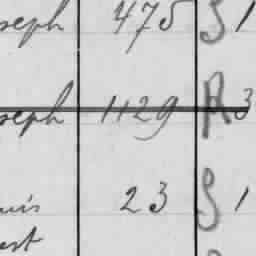 seph 475 S 1
seph 1129 R 3
uis 23 S 1
est